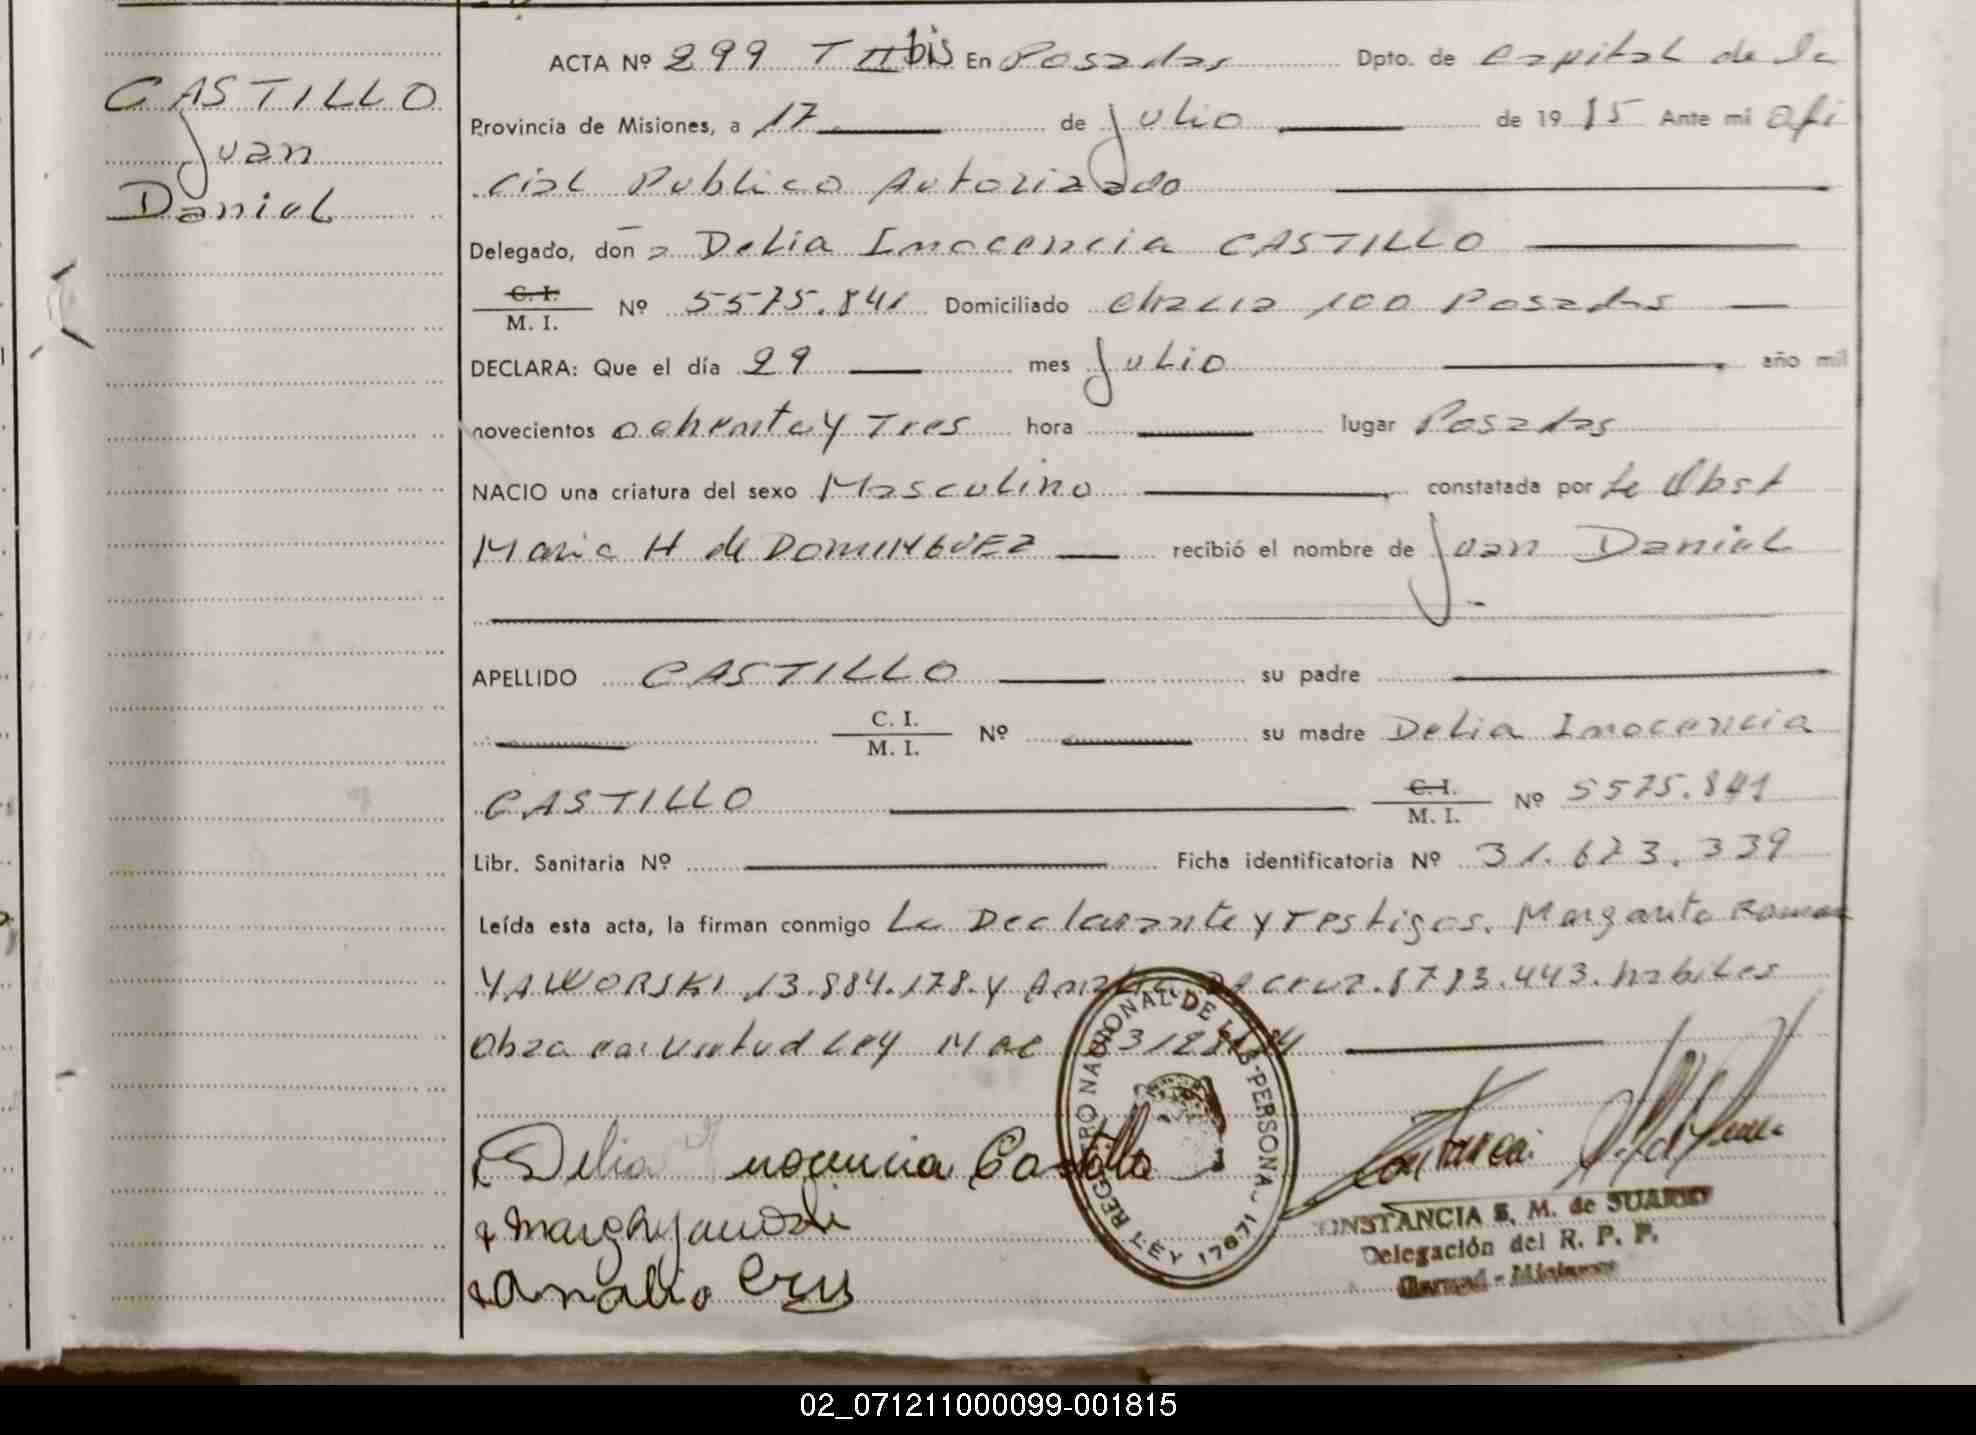 CASTILLO
Juan
Daniel
ACTA Nº 299 T II bis En Posadas Dpto. de Capital de la
Provincia de Misiones, a 17 de Julio de 1985 Ante mí Ofi
cial Publico Autorizado
Delegado, don a Delia Inocencia CASTILLO
C. I. / M. I. Nº 5575.841 Domiciliado 100 Posadas
DECLARA: Que el día 29 mes Julio año mil
novecientos ochenta y Tres hora lugar Posadas
NACIO una criatura del sexo Masculino constatada por la Obst
Maria H de DOMINGUEZ recibió el nombre de Juan Daniel
APELLIDO CASTILLO su padre
C. I. / M. I. Nº su madre Delia Inocencia
CASTILLO C. I. / M. I. Nº 5575.841
Libr. Sanitaria Nº Ficha identificatoria Nº 31.673.339
Leída esta acta, la firman conmigo La Declarante y Testigos. Margarita Ramona
YAWORSKI 13.884.178. y DACRUZ. 8783.443. habiles
Obra en virtud Ley
REGISTRO NACIONAL DE LAS PERSONAS
LEY 17671
Delia Inocencia Castillo
CONSTANCIA E. M. de SUAREZ
Delegación del R. P. P.